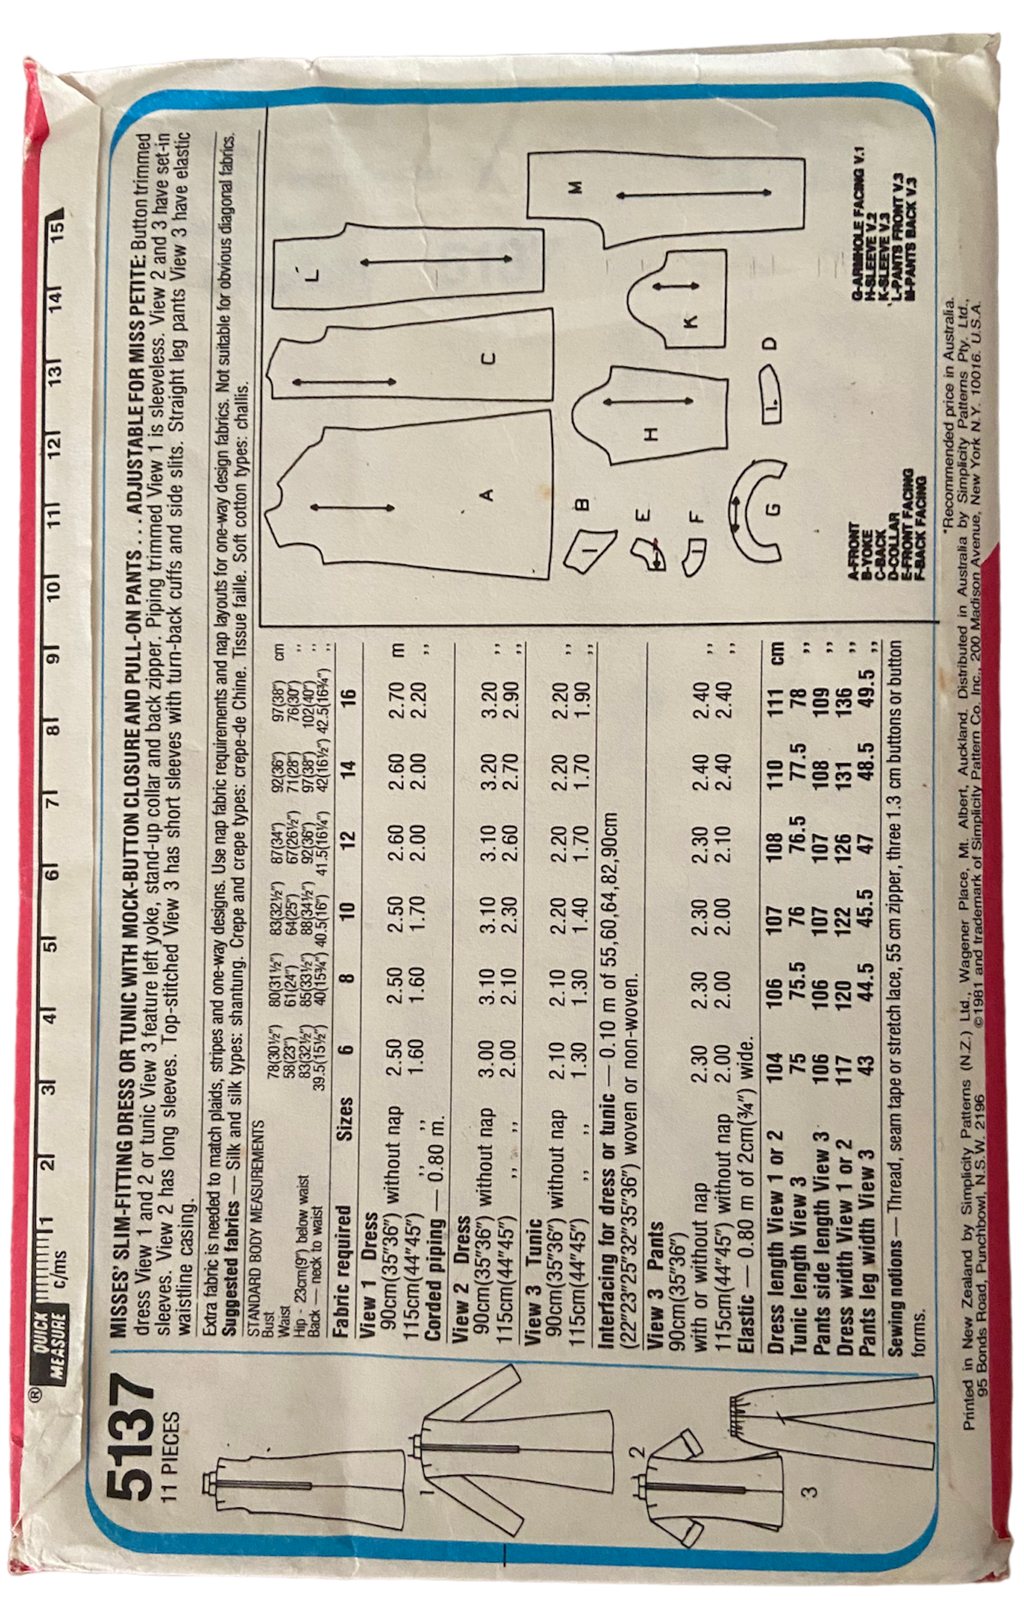 ® QUICK MEASURE c/ms 1 2 3 4 5 6 7 8 9 10 11 12 13 14 15
5137
11 PIECES
MISSES' SLIM-FITTING DRESS OR TUNIC WITH MOCK-BUTTON CLOSURE AND PULL-ON PANTS... ADJUSTABLE FOR MISS PETITE: Button trimmed
dress View 1 and 2 or tunic View 3 feature left yoke, stand-up collar and back zipper. Piping trimmed View 1 is sleeveless. View 2 and 3 have set-in
sleeves. View 2 has long sleeves. Top-stitched View 3 has short sleeves with turn-back cuffs and side slits. Straight leg pants View 3 have elastic
waistline casing.
Extra fabric is needed to match plaids, stripes and one-way designs. Use nap fabric requirements and nap layouts for one-way design fabrics. Not suitable for obvious diagonal fabrics.
Suggested fabrics — Silk and silk types: shantung. Crepe and crepe types: crepe-de Chine. Tissue faille. Soft cotton types: challis.
STANDARD BODY MEASUREMENTS
Bust 78(30½") 80(31½") 83(32½") 87(34") 92(36") 97(38") cm
Waist 58(23") 61(24") 64(25") 67(26½") 71(28") 76(30") ,,
Hip - 23cm(9") below waist 83(32½") 85(33½") 88(34½") 92(36") 97(38") 102(40") ,,
Back — neck to waist 39.5(15½") 40(15¾") 40.5(16") 41.5(16¼") 42(16½") 42.5(16¾") ,,
Fabric required Sizes 6 8 10 12 14 16
View 1 Dress
90cm(35"36") without nap 2.50 2.50 2.50 2.60 2.60 2.70 m
115cm(44"45") ,, ,, 1.60 1.60 1.70 2.00 2.00 2.20 ,,
Corded piping — 0.80 m.
View 2 Dress
90cm(35"36") without nap 3.00 3.10 3.10 3.10 3.20 3.20 ,,
115cm(44"45") ,, ,, 2.00 2.10 2.30 2.60 2.70 2.90 ,,
View 3 Tunic
90cm(35"36") without nap 2.10 2.10 2.20 2.20 2.20 2.20 ,,
115cm(44"45") ,, ,, 1.30 1.30 1.40 1.70 1.70 1.90 ,,
Interfacing for dress or tunic — 0.10 m of 55,60,64,82,90cm
(22"23"25"32"35"36") woven or non-woven.
View 3 Pants
90cm(35"36")
with or without nap 2.30 2.30 2.30 2.30 2.40 2.40 ,,
115cm(44"45") without nap 2.00 2.00 2.00 2.10 2.40 2.40 ,,
Elastic — 0.80 m of 2cm(¾") wide.
Dress length View 1 or 2 104 106 107 108 110 111 cm
Tunic length View 3 75 75.5 76 76.5 77.5 78 ,,
Pants side length View 3 106 106 107 107 108 109 ,,
Dress width View 1 or 2 117 120 122 126 131 136 ,,
Pants leg width View 3 43 44.5 45.5 47 48.5 49.5 ,,
Sewing notions — Thread, seam tape or stretch lace, 55 cm zipper, three 1.3 cm buttons or button
forms.
1
2
3
A
B
C
D
E
F
G
H
K
L
M
A-FRONT
B-YOKE
C-BACK
D-COLLAR
E-FRONT FACING
F-BACK FACING
G-ARMHOLE FACING V.1
H-SLEEVE V.2
K-SLEEVE V.3
L-PANTS FRONT V.3
M-PANTS BACK V.3
*Recommended price in Australia.
Printed in New Zealand by Simplicity Patterns (N.Z.) Ltd., Wagener Place, Mt. Albert, Auckland. Distributed in Australia by Simplicity Patterns Pty. Ltd.,
95 Bonds Road, Punchbowl, N.S.W. 2196 ©1981 and trademark of Simplicity Pattern Co. Inc., 200 Madison Avenue, New York N.Y. 10016. U.S.A.